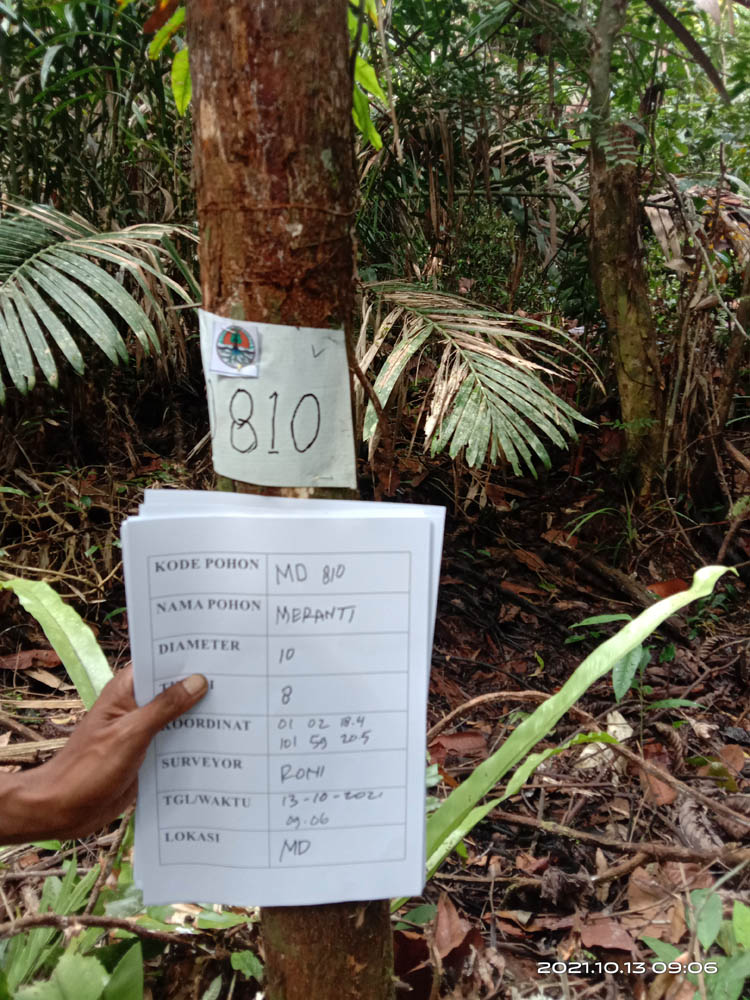 810
KODE POHON MD 810
NAMA POHON MERANTI
DIAMETER 10
8
KOORDINAT 01 02 18.4
101 59 20.5
SURVEYOR ROMI
TGL/WAKTU 13-10-2021
09.06
LOKASI MD
2021.10.13 09:06